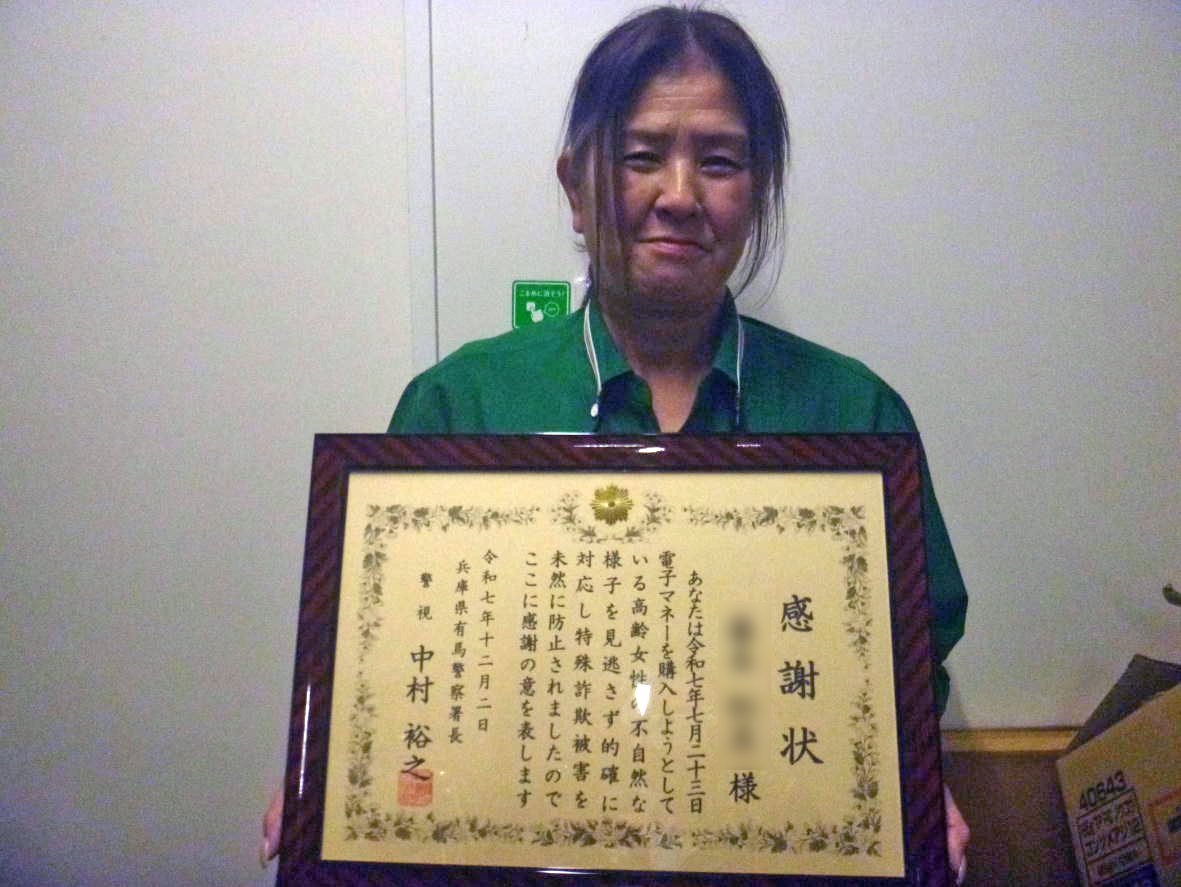 感謝状
様
あなたは令和七年七月二十三日
電子マネーを購入しようとして
いる高齢女性の不自然な
様子を見逃さず的確に
対応し特殊詐欺被害を
未然に防止されましたので
ここに感謝の意を表します
令和七年十二月二日
兵庫県有馬警察署長
警視 中村裕之
こまめに消そう!
40643